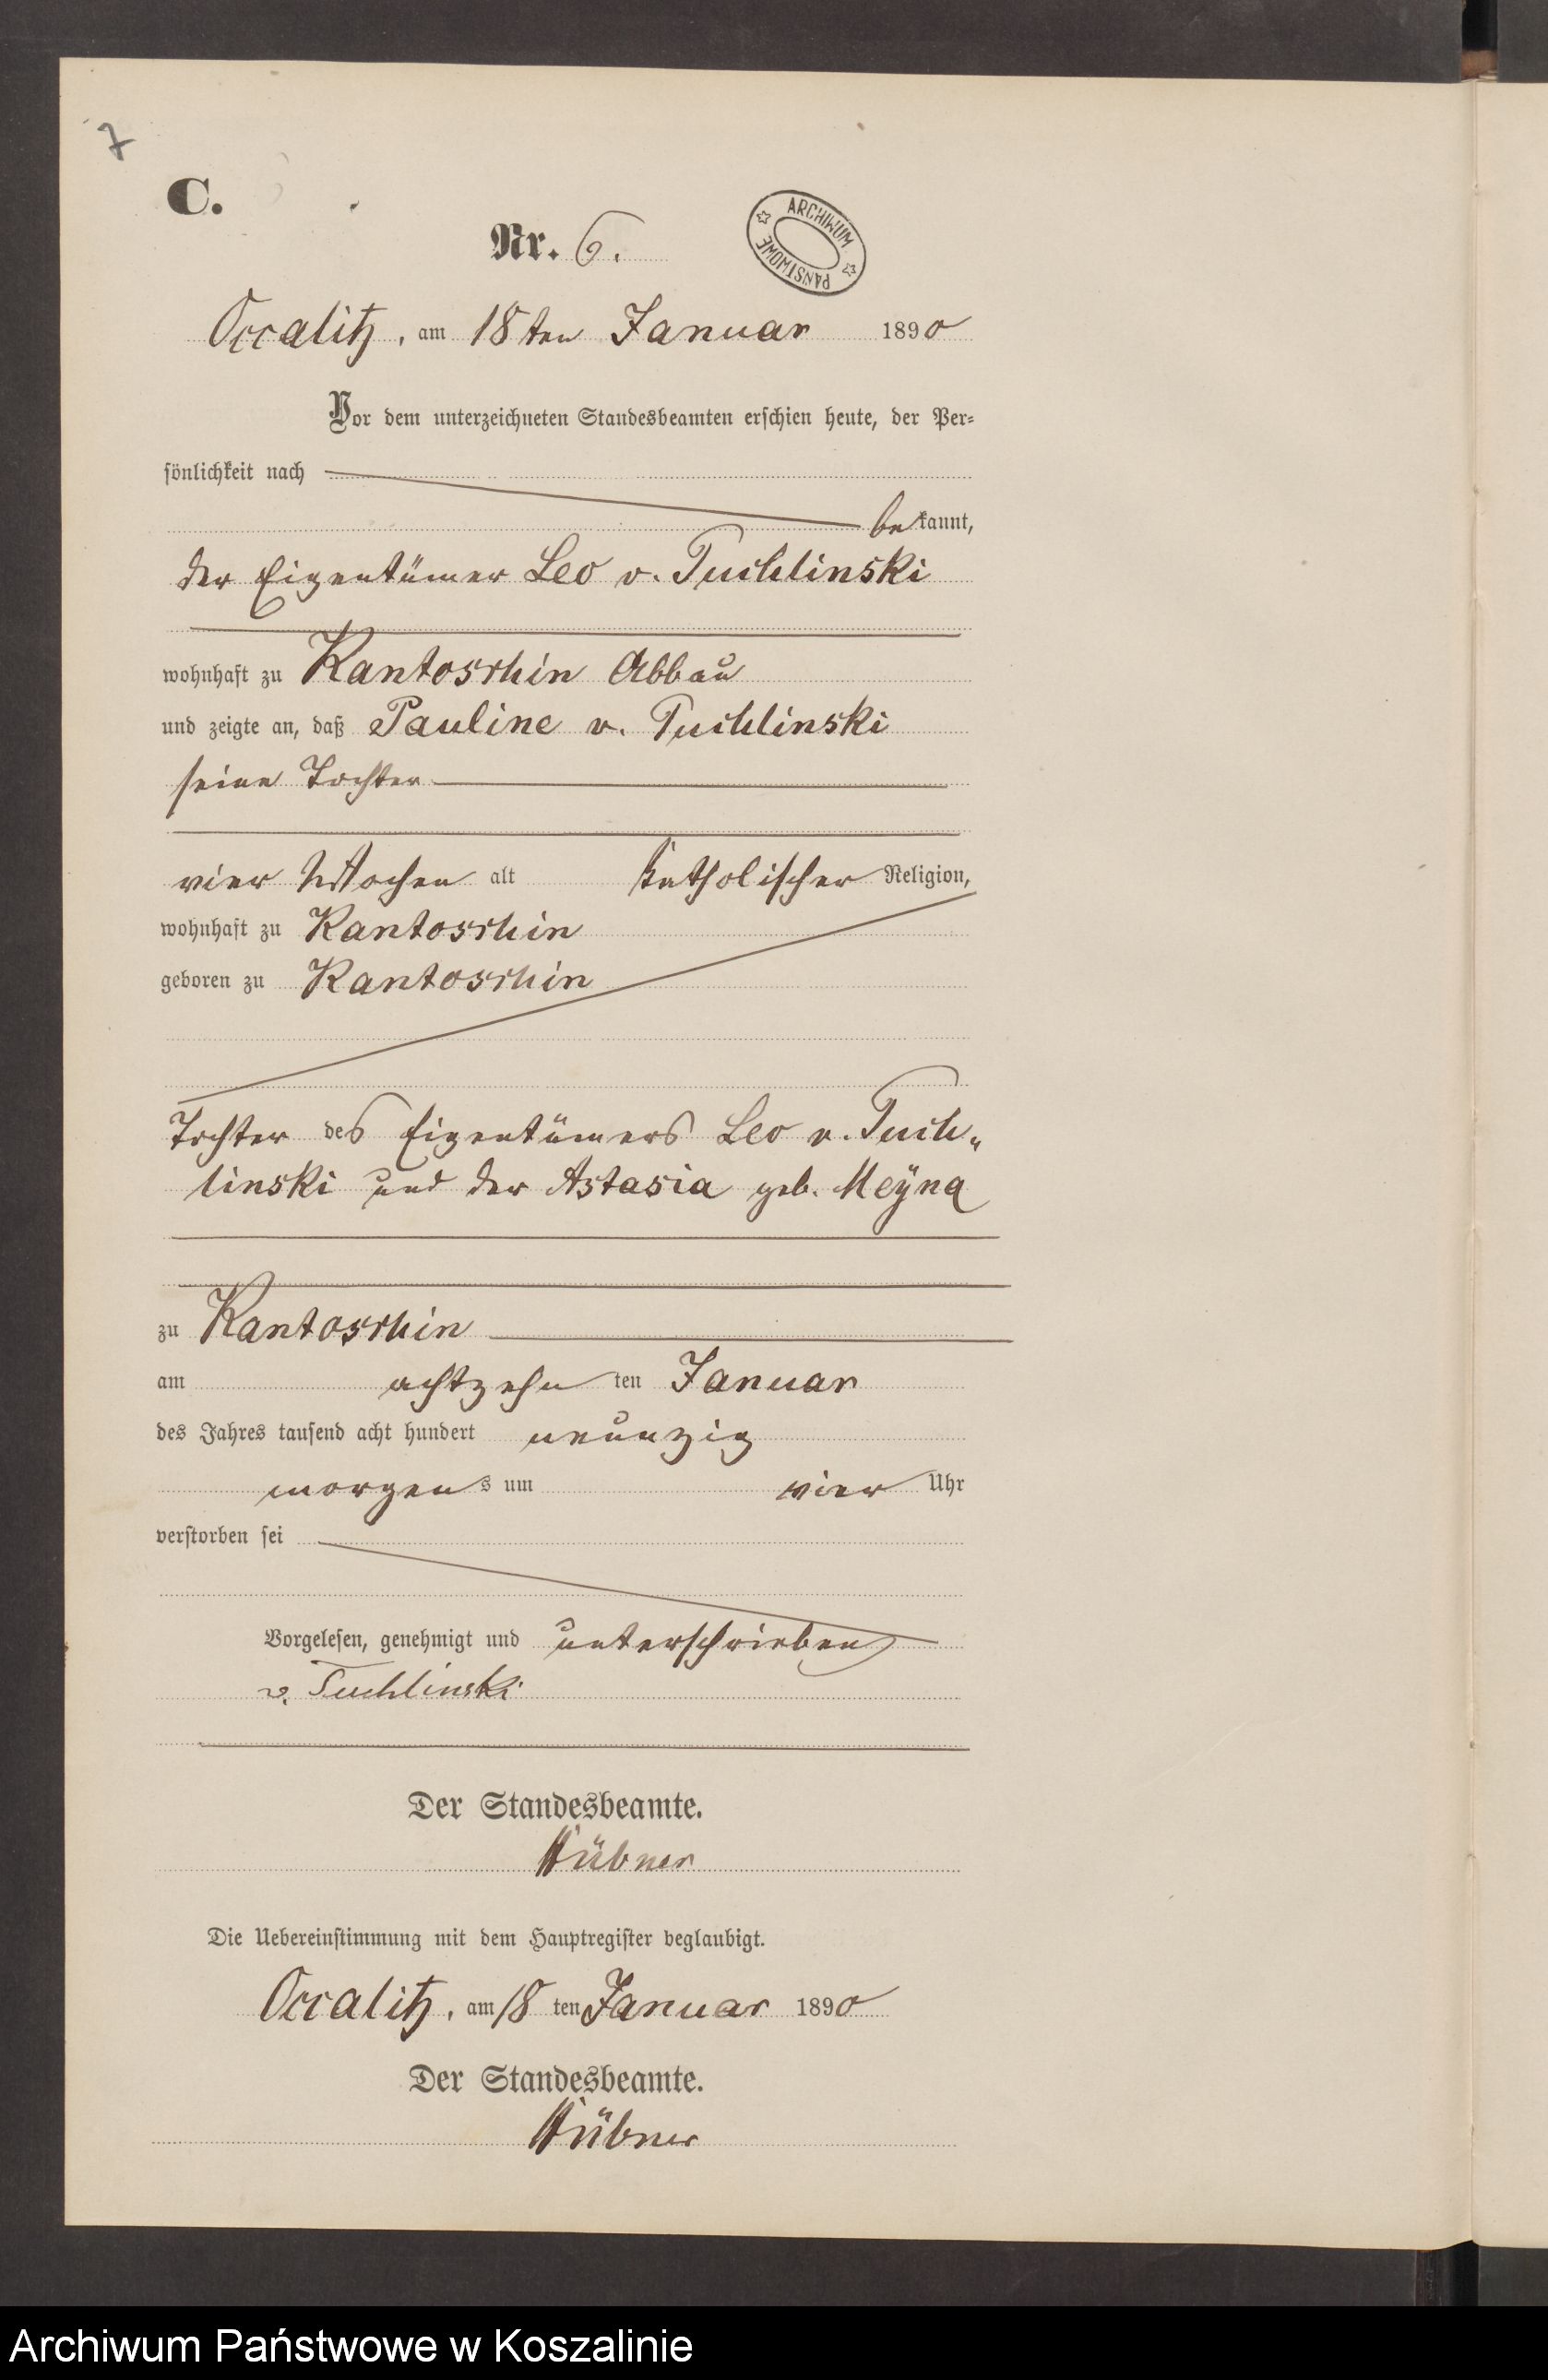 7
C.
Nr. 6.
ARCHIWUM PAŃSTWOWE
Occalitz, am 18ten Januar 1890
Vor dem unterzeichneten Standesbeamten erschien heute, der Per-
sönlichkeit nach
bekannt,
der Eigentümer Leo v. Tuchlinski
wohnhaft zu Kantoschin Abbau
und zeigte an, daß Pauline v. Tuchlinski
seine Tochter
vier Wochen alt katholischer Religion,
wohnhaft zu Kantoschin
geboren zu Kantoschin
Tochter des Eigentümers Leo v. Tuch-
linski und der Astasia geb. Meÿna
zu Kantoschin
am achtzehn ten Januar
des Jahres tausend acht hundert neunzig
morgens um vier Uhr
verstorben sei
Vorgelesen, genehmigt und unterschrieben
v. Tuchlinski
Der Standesbeamte.
Hübner
Die Uebereinstimmung mit dem Hauptregister beglaubigt.
Occalitz, am 18 ten Januar 1890
Der Standesbeamte.
Hübner
Archiwum Państwowe w Koszalinie